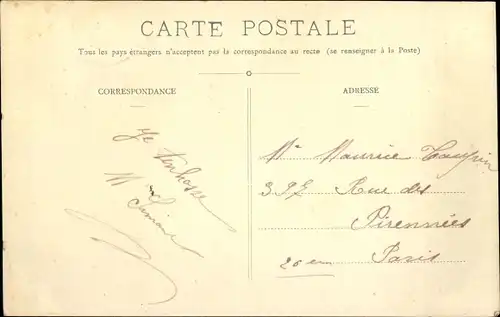 CARTE POSTALE
Tous les pays étrangers n'acceptent pas la correspondance au recto (se renseigner à la Poste)
CORRESPONDANCE
Je
M
ADRESSE
Mr Maurice
Rue des
Pirennées
20 em Paris